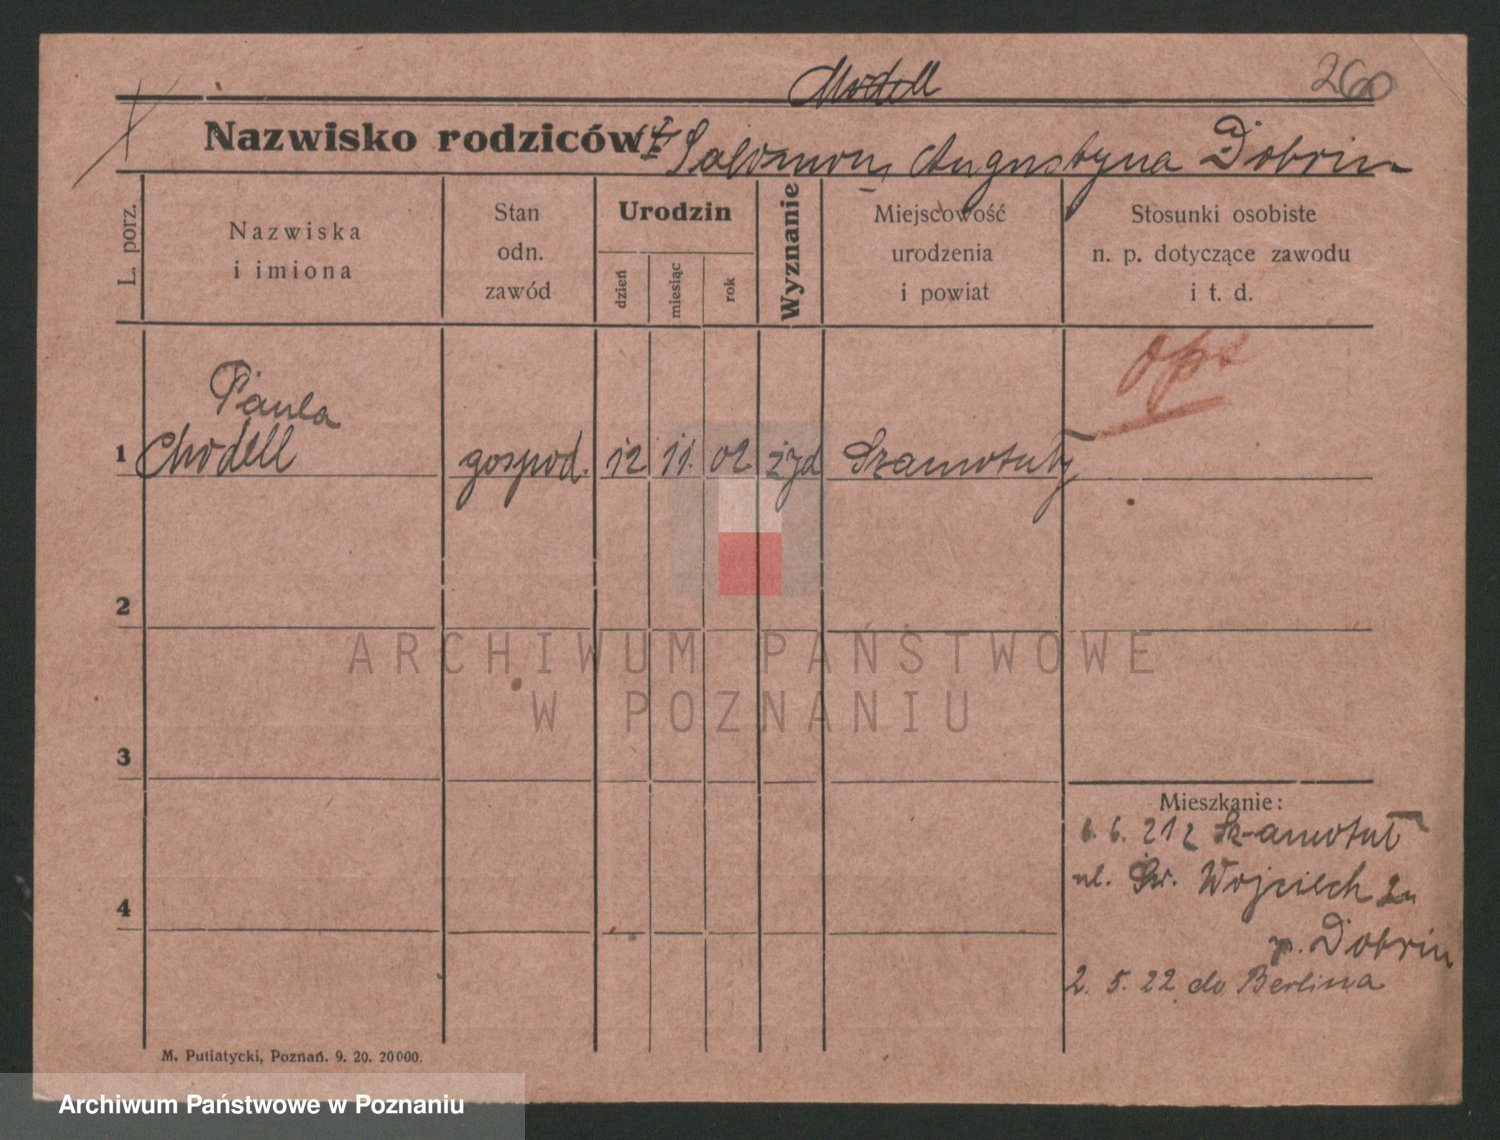 Modell
260
Nazwisko rodziców: Salomon, Augustyna Dobrin
L. porz.
Nazwiska
i imiona
Stan
odn.
zawód
Urodzin
dzień
miesiąc
rok
Wyznanie
Miejscowość
urodzenia
i powiat
Stosunki osobiste
n. p. dotyczące zawodu
i t. d.
Paula
1 Modell gospod. 12 11. 02. żyd Szamotuły
2
ARCHIWUM PAŃSTWOWE
W POZNANIU
3
Mieszkanie:
6. 6. 21 z Szamotuł
ul. Św. Wojciech
p. Dobrin
4
2. 5. 22 do Berlina
M. Putiatycki, Poznań. 9. 20. 20000.
Archiwum Państwowe w Poznaniu